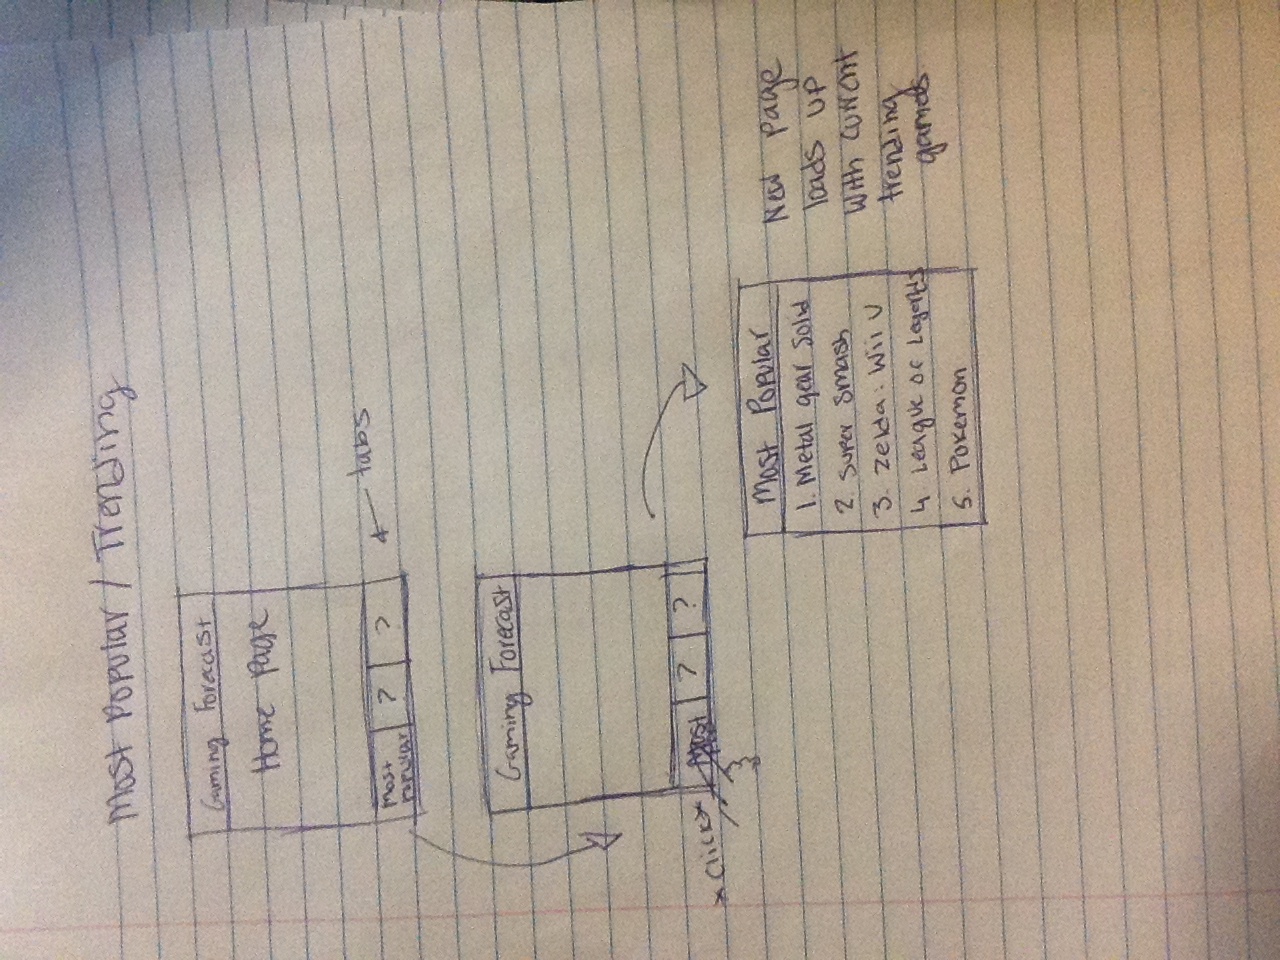 Most Popular / Trending
Gaming Forecast
Home Page
Most
Popular
?
?
tabs
Gaming Forecast
*click*
Most
?
?
Most Popular
1. Metal gear Solid
2. Super Smash
3. Zelda: Wii U
4. League of Legends
5. Pokemon
New page
loads up
with current
trending
games